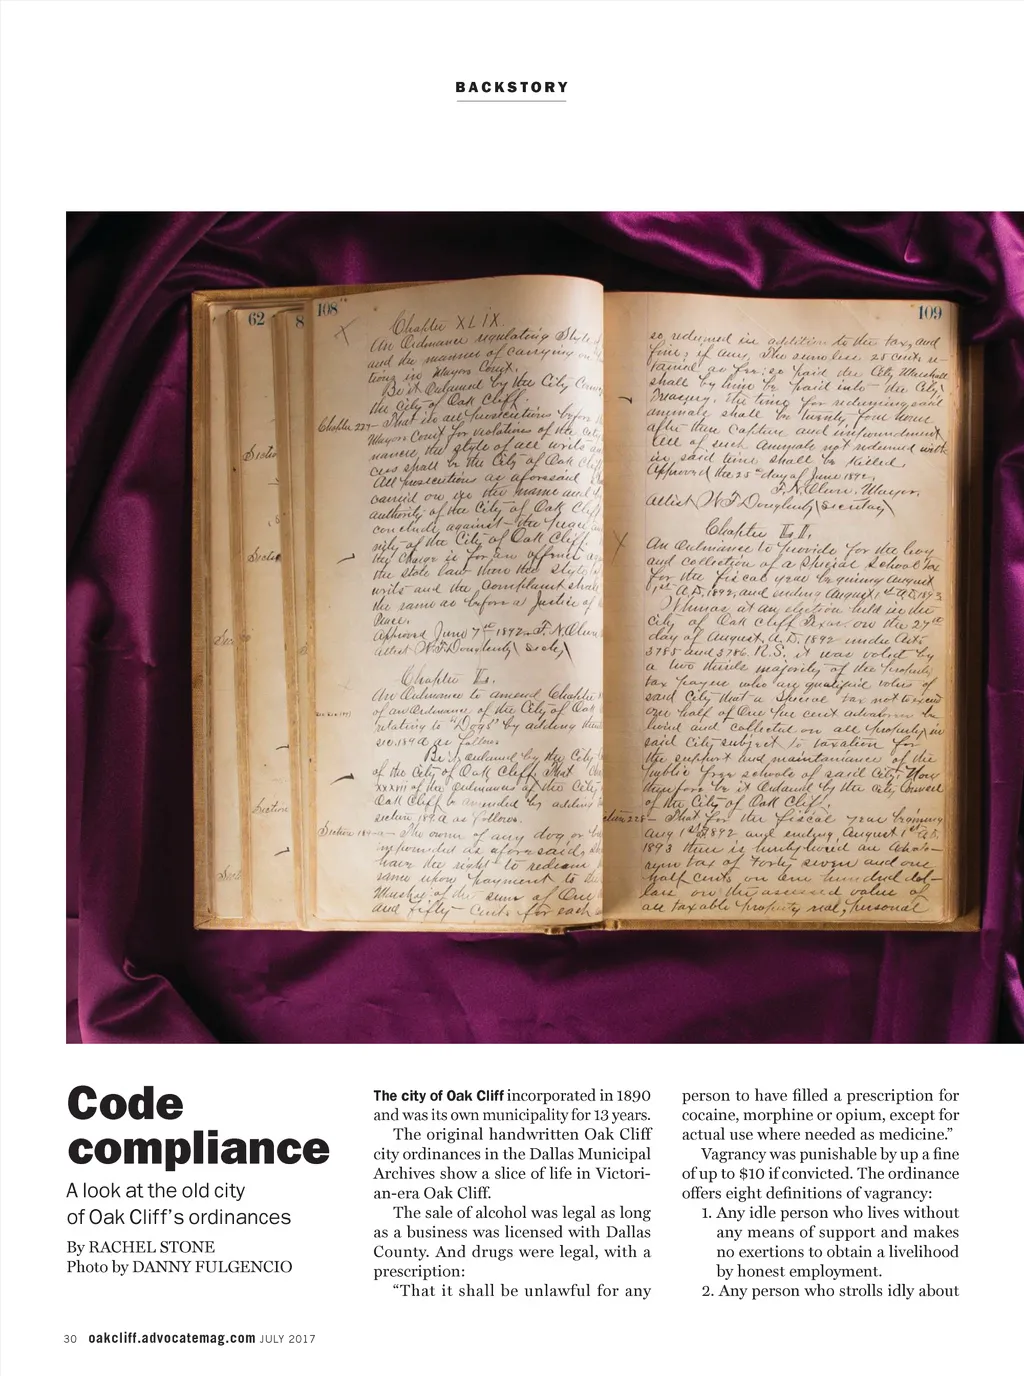 BACKSTORY
62
8
108
109
Chapter XLIX.
An Ordinance regulating Style
and the manner of carrying on
tions in Mayors Court.
Be it Ordained by the City
the City of Oak Cliff.
That in all prosecutions before
Mayors Court for violations of the City
nance the style of all writs
cess shall be the City of Oak Cliff
All prosecutions as aforesaid
carried on in the name and
authority of the City of Oak Cliff
conclude against the peace
nity of the City of Oak Cliff.
the charge is for an offense
the State law then the style
writs and the Complaint shall
the same as before a Justice of
Peace.
Approved June 7th 1892. F. N. Oliver
Attest W F Dougherty Secty
Chapter L.
An Ordinance to amend Chapter
of an Ordinance of the City of Oak
relating to "Dogs" by adding
sec. 189a as follows
Be it ordained by the City
of the City of Oak Cliff. That
XXXIII of the Ordinances of the City
Oak Cliff be amended by adding
section 189a as follows.
Section 189a — The owner of any dog or
impounded as aforesaid,
have the right to redeem
same upon payment to the
Marshal of the sum of One
and fifty cents for each
so redeemed in addition to the tax, and
fine, if any, The sum less 25 cents re-
tained as fee; so paid the City Marshall
shall by him be paid into the City
Treasury. The time for redeeming said
animals shall be twenty four hours
after their capture and impoundment
All of such animals not redeemed with
in said time shall be killed.
Approved the 25th day of June 1892.
F. N. Oliver. Mayor.
Attest W F Dougherty Secretary
Chapter LI.
An Ordinance to provide for the levy
and collection of a Special School Tax
for the fiscal year beginning August
1st A.D. 1892, and ending August 1st A.D. 1893
Whereas at an election held in the
City of Oak Cliff Texas on the 27th
day of August A.D. 1892 under Arts
3785 and 3786. R.S. it was voted by
a two thirds majority of the property
tax payers who are qualified voters of
said City that a Special tax not to exceed
one half of One per cent advalorem be
levied and collected on all property in
said City subject to taxation for
the support and maintainance of the
public free schools of said City. Now
therefore be it Ordained by the City Council
of the City of Oak Cliff.
228 — That for the fiscal year beginning
Aug 1st 1892 and ending August 1st A.D.
1893 there is hereby levied an advalo-
rem tax of Forty seven and one
half cents on one hundred dol-
lars on the assessed value of
all taxable property real, personal
Code
compliance
A look at the old city
of Oak Cliff's ordinances
By RACHEL STONE
Photo by DANNY FULGENCIO
The city of Oak Cliff incorporated in 1890
and was its own municipality for 13 years.
The original handwritten Oak Cliff
city ordinances in the Dallas Municipal
Archives show a slice of life in Victori-
an-era Oak Cliff.
The sale of alcohol was legal as long
as a business was licensed with Dallas
County. And drugs were legal, with a
prescription:
“That it shall be unlawful for any
person to have filled a prescription for
cocaine, morphine or opium, except for
actual use where needed as medicine.”
Vagrancy was punishable by up a fine
of up to $10 if convicted. The ordinance
offers eight definitions of vagrancy:
1. Any idle person who lives without
any means of support and makes
no exertions to obtain a livelihood
by honest employment.
2. Any person who strolls idly about
30 oakcliff.advocatemag.com JULY 2017